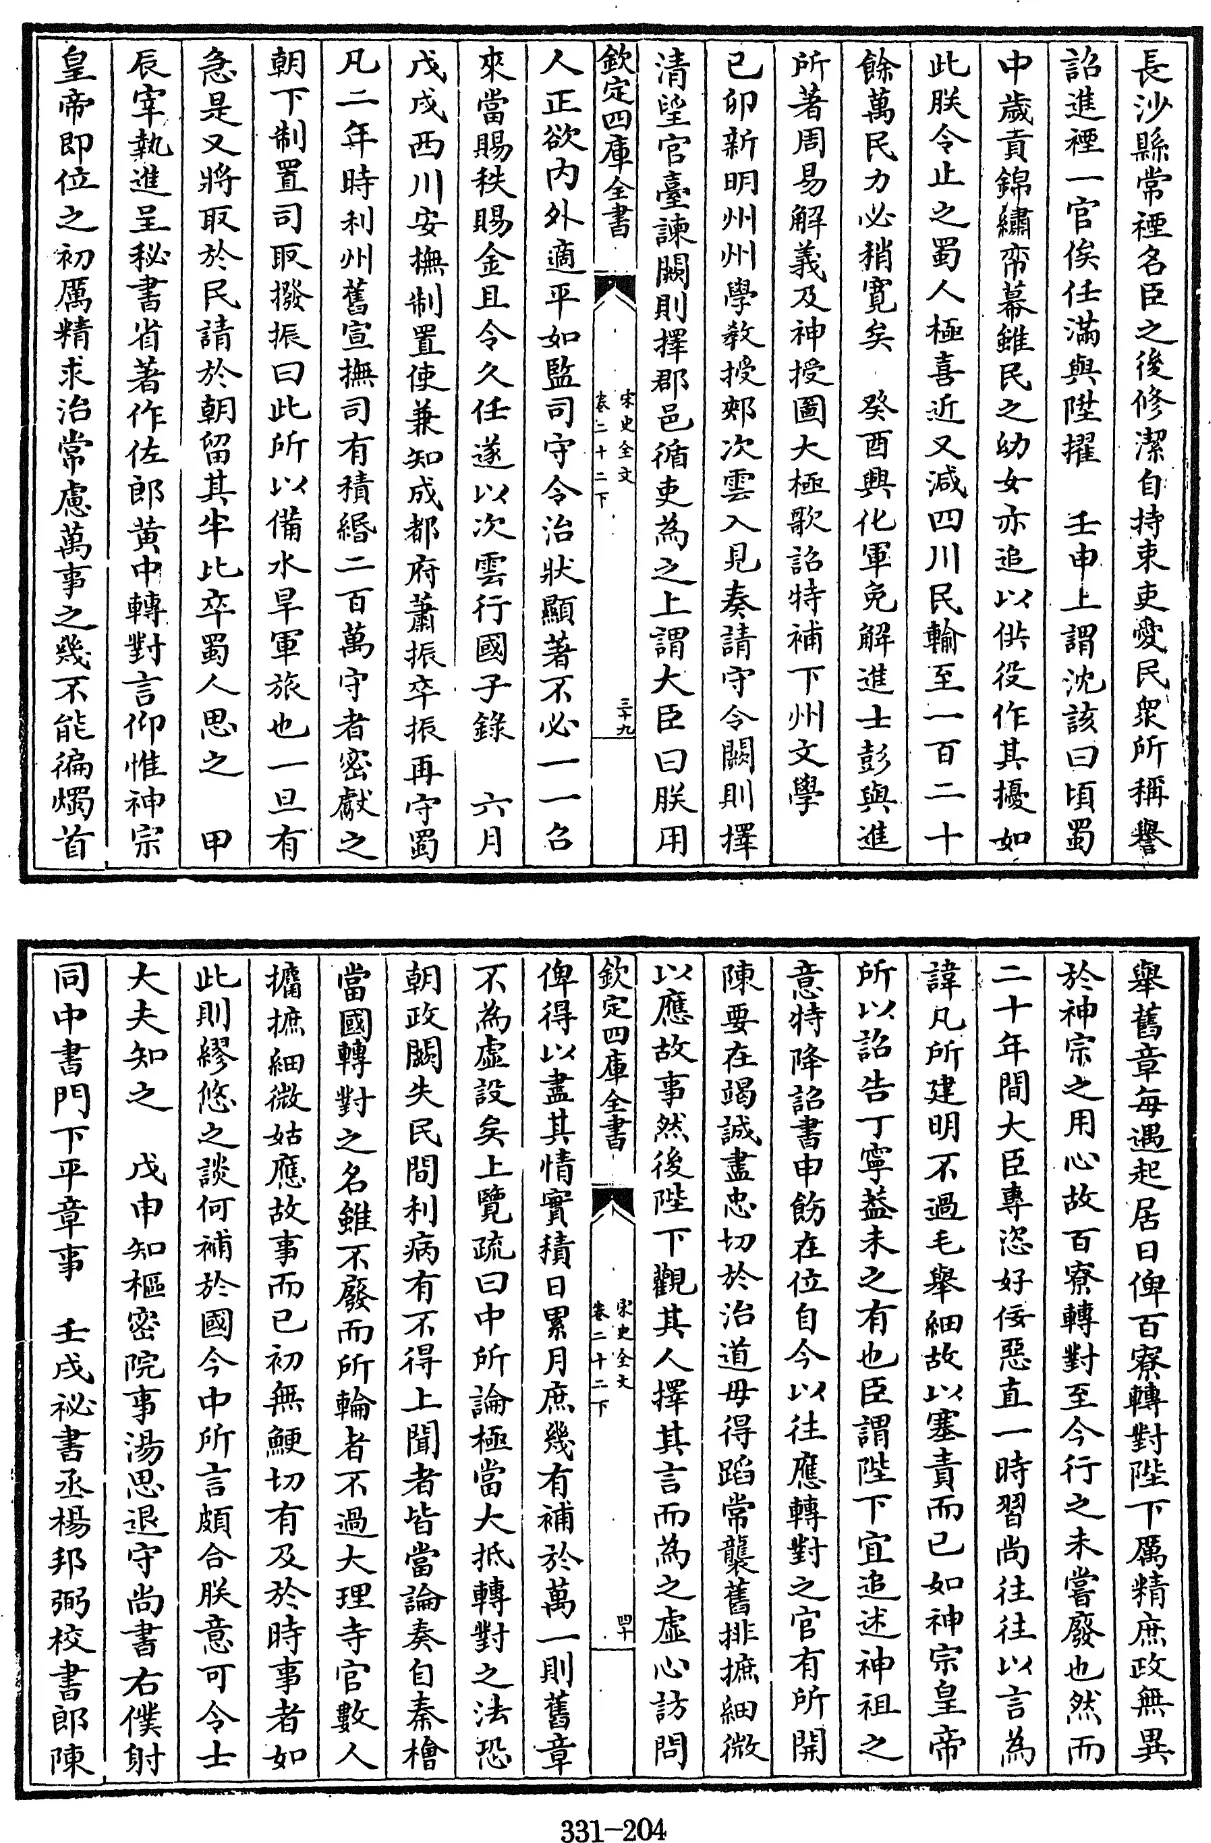 長沙縣常禋名臣之後修潔自持束吏愛民衆所稱譽
詔進禋一官俟任滿與陞擢　壬申上謂沈該曰頃蜀
中歲貢錦繡帟幕雖民之幼女亦追以供役作其擾如
此朕令止之蜀人極喜近又減四川民輸至一百二十
餘萬民力必稍寛矣　癸酉興化軍免解進士彭與進
所著周易解義及神授圖大極歌詔特補下州文學
已卯新明州州學教授郟次雲入見奏請守令闕則擇
清望官臺諫闕則擇郡邑循吏為之上謂大臣曰朕用
欽定四庫全書
宋史全文
卷二十二下
三十九
人正欲内外適平如監司守令治狀顯著不必一一召
來當賜秩賜金且令久任遂以次雲行國子錄　六月
戊戌西川安撫制置使兼知成都府蕭振卒振再守蜀
凡二年時利州舊宣撫司有積緡二百萬守者密獻之
朝下制置司取撥振曰此所以備水旱軍旅也一旦有
急是又將取於民請於朝留其半比卒蜀人思之　甲
辰宰執進呈秘書省著作佐郎黄中轉對言仰惟神宗
皇帝即位之初厲精求治常慮萬事之幾不能徧燭首
舉舊章每遇起居日俾百寮轉對陛下厲精庶政無異
於神宗之用心故百寮轉對至今行之未嘗廢也然而
二十年間大臣專恣好佞惡直一時習尚往往以言為
諱凡所建明不過毛舉細故以塞責而已如神宗皇帝
所以詔告丁寧葢未之有也臣謂陛下宜追述神祖之
意特降詔書申飭在位自今以往應轉對之官有所開
陳要在竭誠盡忠切於治道毋得蹈常襲舊排摭細微
以應故事然後陛下觀其人擇其言而為之虛心訪問
欽定四庫全書
宋史全文
卷二十二下
四十
俾得以盡其情實積日累月庶幾有補於萬一則舊章
不為虛設矣上覽疏曰中所論極當大抵轉對之法恐
朝政闕失民間利病有不得上聞者皆當論奏自秦檜
當國轉對之名雖不廢而所輪者不過大理寺官數人
擄摭細微姑應故事而已初無鯁切有及於時事者如
此則繆悠之談何補於國今中所言頗合朕意可令士
大夫知之　戊申知樞密院事湯思退守尚書右僕射
同中書門下平章事　壬戌祕書丞楊邦弼校書郎陳
331-204